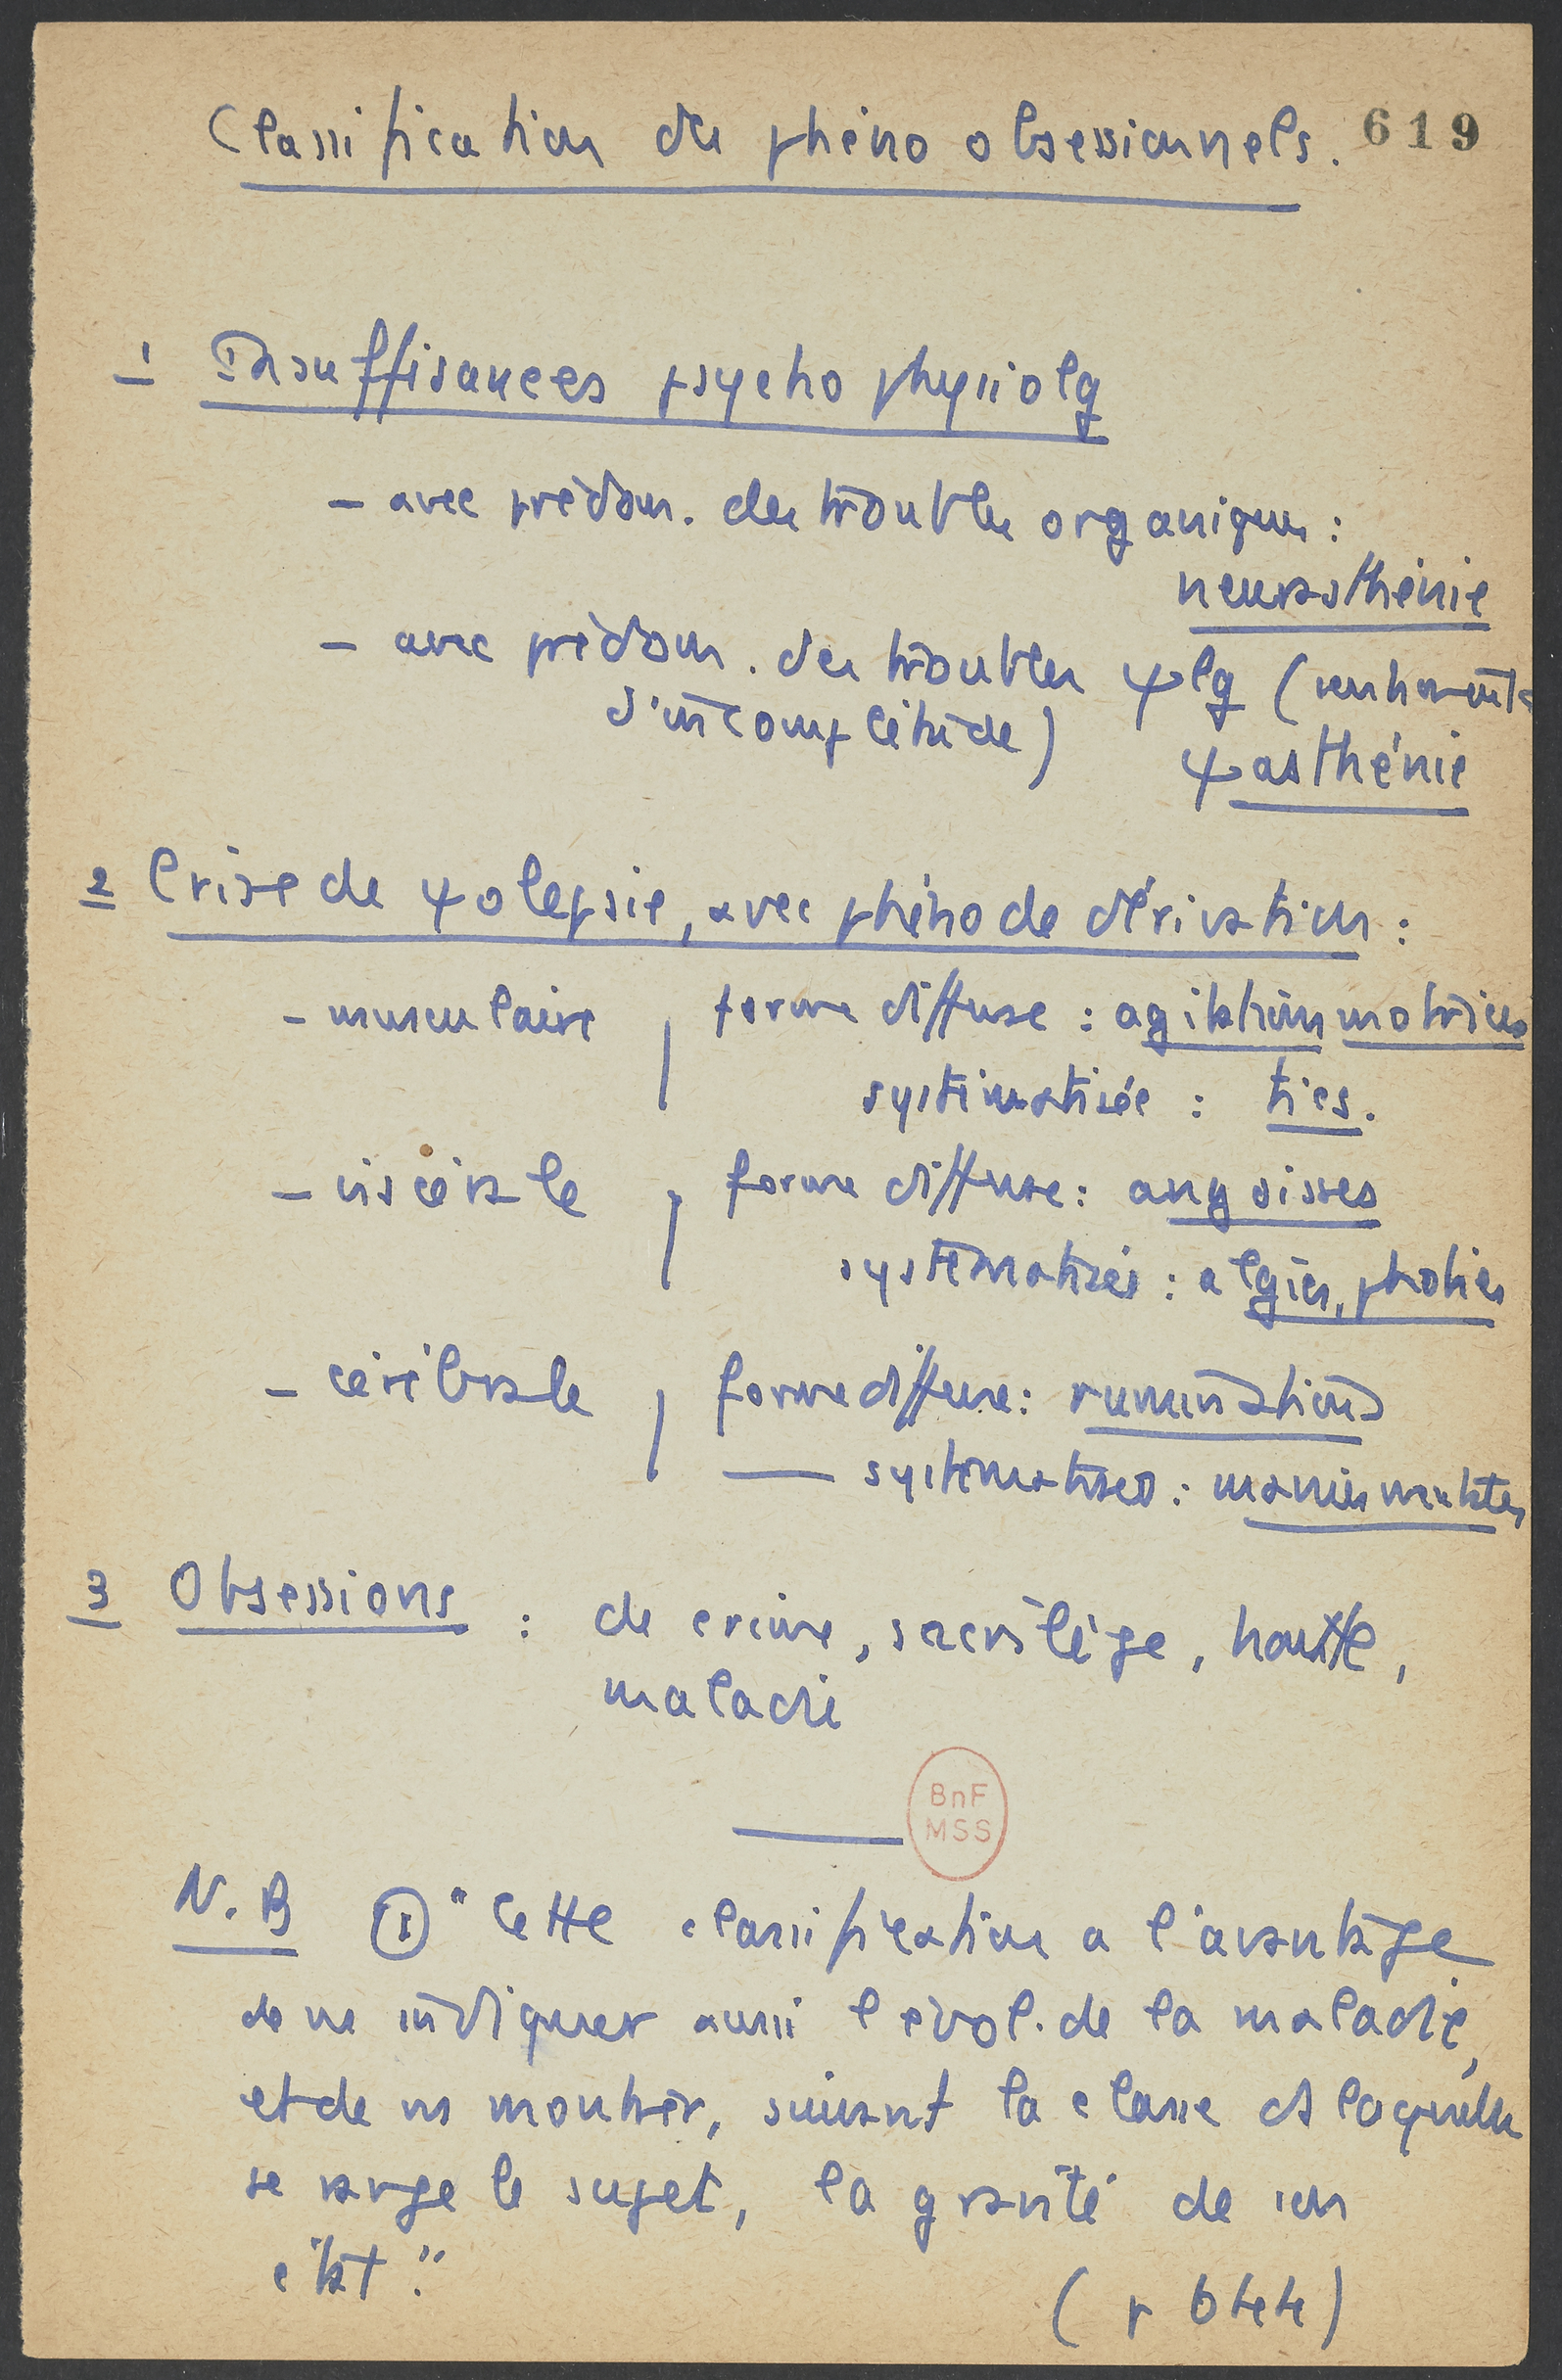 Classification des phéno obsessionnels. 619
1 Insuffisances psycho physiolg
- avec prédom. des troubles organiques :
neurasthénie
- avec prédom. des troubles ψlg (sentiments
d'incomplétude) ψasthénie
2 Crise de ψolepsie, avec phéno de dérivation :
- musculaire, forme diffuse : agitations motrices
systématisée : tics.
- viscérale, forme diffuse : angoisses
systématisées : algies, phobies
- cérébrale, forme diffuse : ruminations
— systématisées : manies mentales
3 Obsessions : de crime, sacrilège, honte,
maladie
BnF
MSS
N. B ① "Cette classification a l'avantage
de ns indiquer aussi l'évol. de la maladie,
et de ns montrer, suivant la classe ds laquelle
se range le sujet, la gravité de son
état."
(p